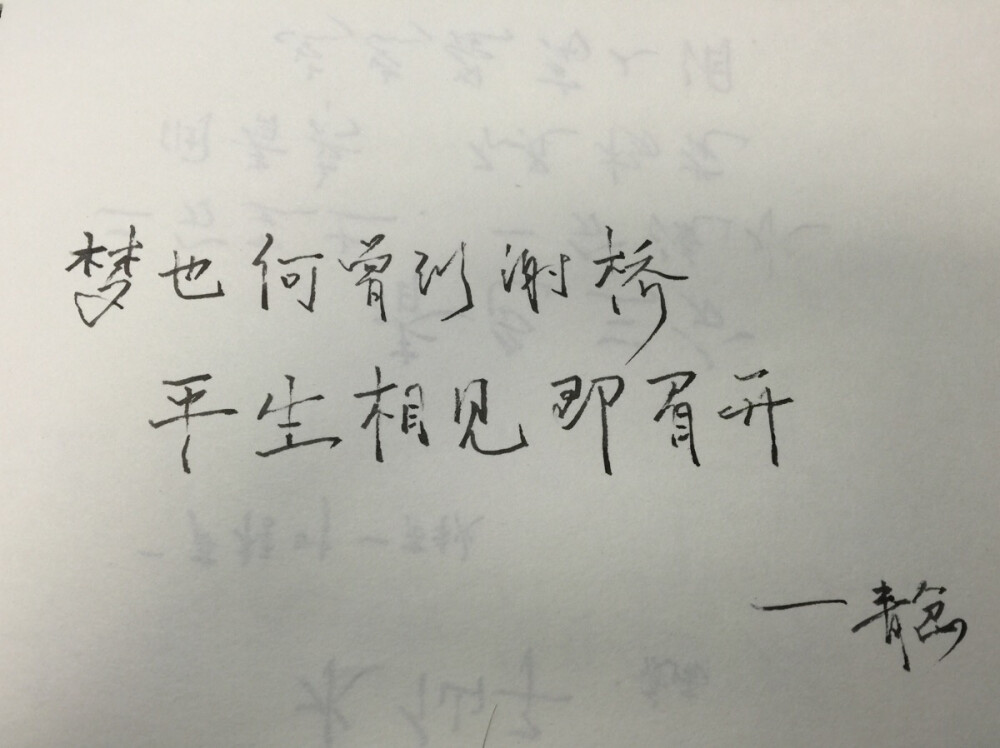 梦也何曾到谢桥
平生相见即眉开